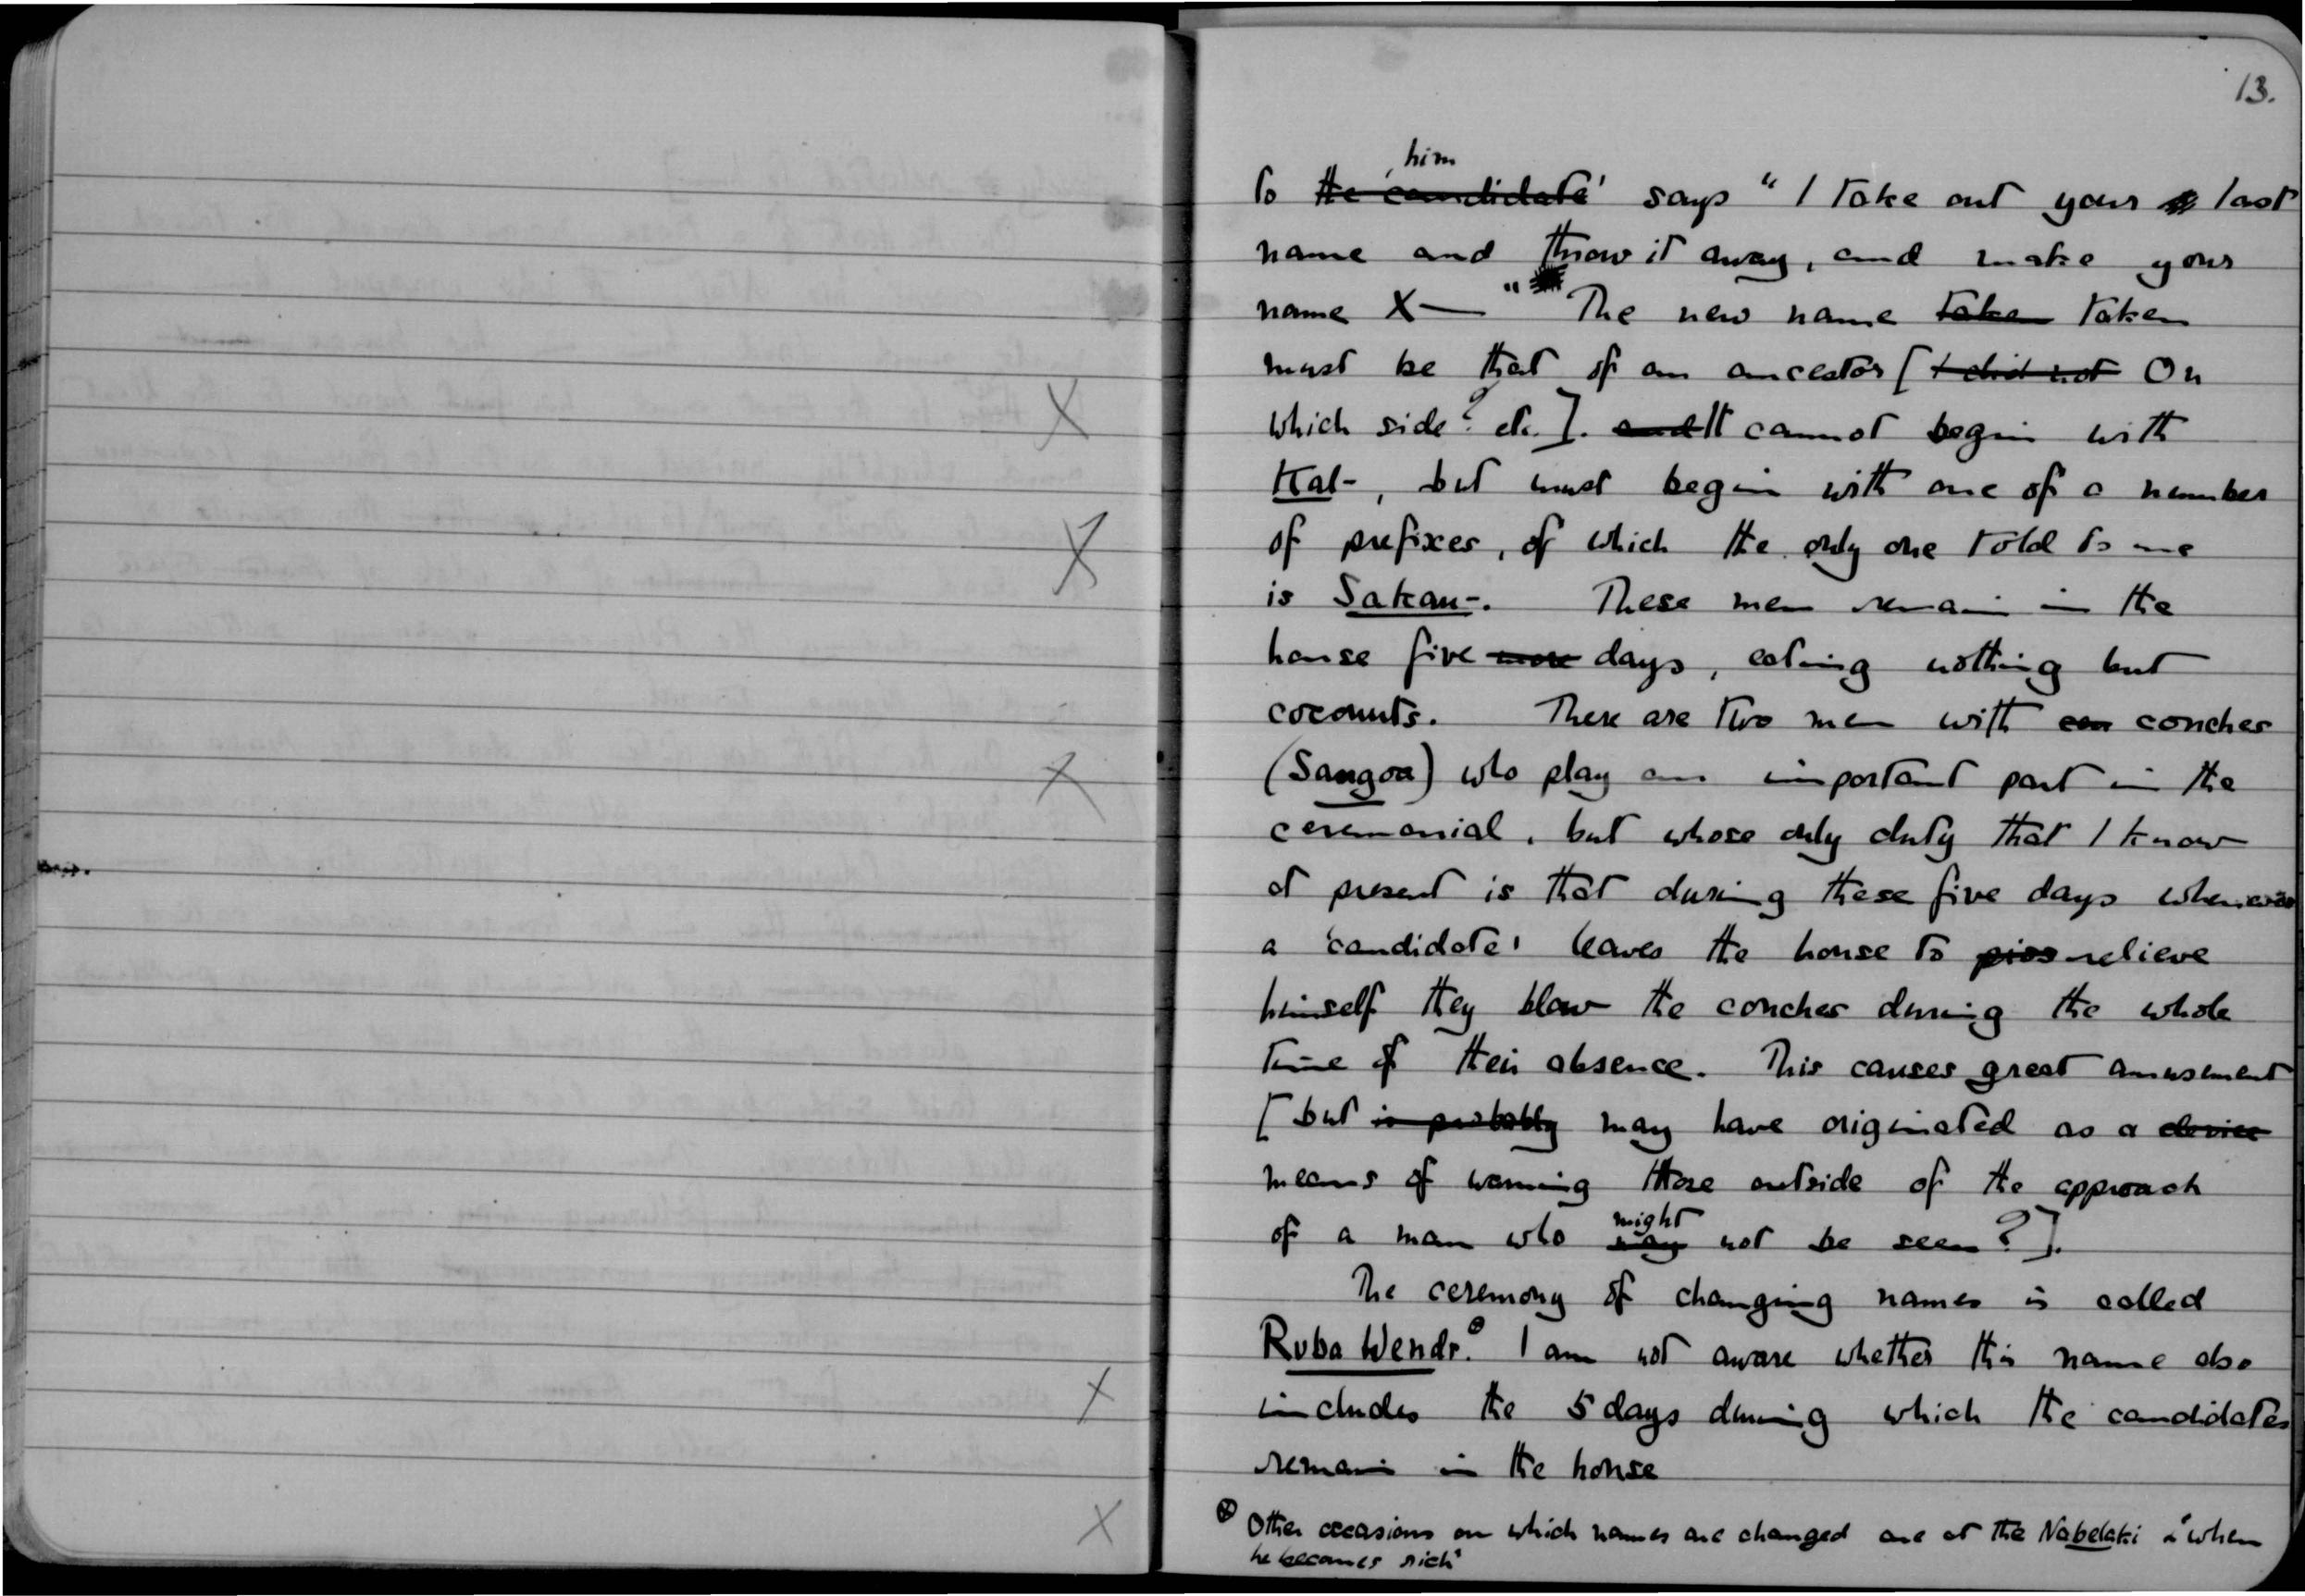 13.
him
to the candidate' says "I take out your last
name and throw it away, and make your
name X— " The new name taken taken
must be that of an ancestor [I did not On
which side? etc.]. and It cannot begin with
Kal-, but must begin with one of a number
of prefixes, of which the only one told to me
is Sakau-. These men remain in the
house five more days, eating nothing but
coconuts. There are two men with con conches
(Sangoa) who play an important part in the
ceremonial, but whose only duty that I know
at present is that during these five days whenever
a 'candidate' leaves the house to piss relieve
himself they blow the conches during the whole
time of their absence. This causes great amusement
[but is probably may have originated as a device
means of warning those outside of the approach
might
of a man who may not be seen?].
The ceremony of changing names is called
Ruba Wendr.⊗ I am not aware whether this name also
includes the 5 days during which the candidates
remain in the house
⊗ Other occasions on which names are changed are at the Nabelaki & "when
he becomes rich"
X
X
X
X
X